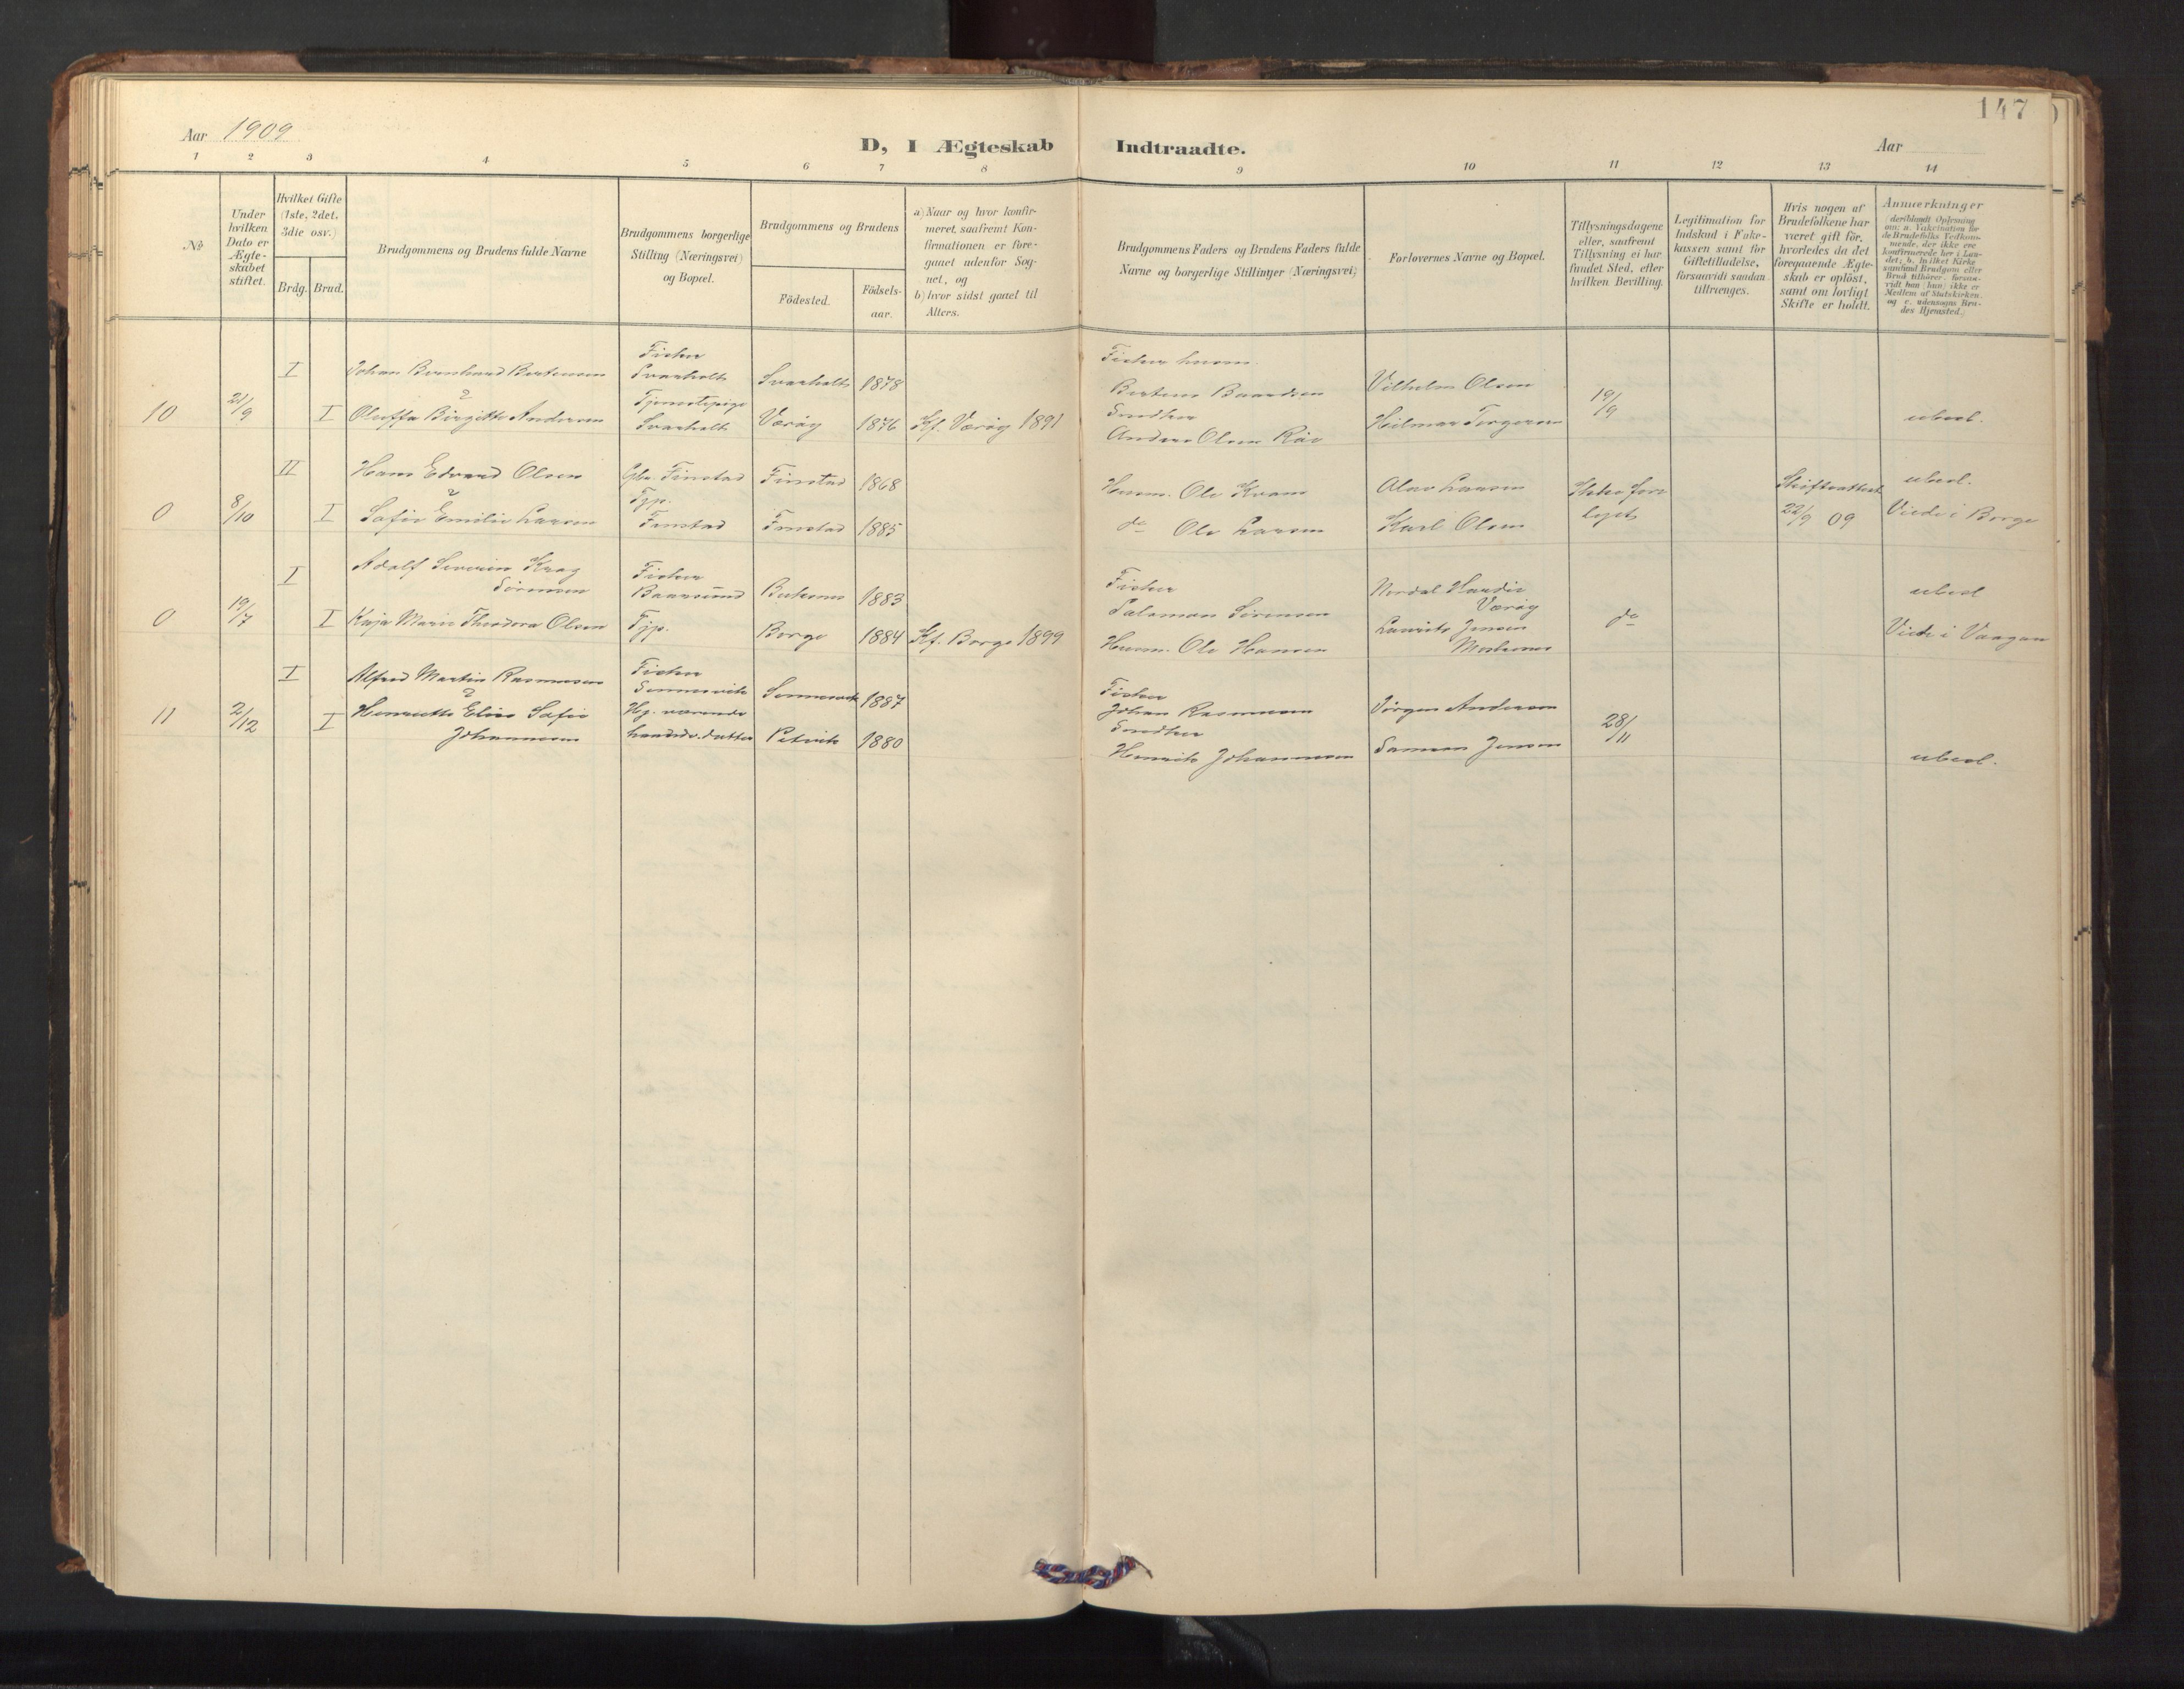 147
Aar 1909
D, I Ægteskab Indtraadte.
Aar
1 2 3 4 5 6 7 8 9 10 11 12 13 14
No
Under hvilken Dato er Ægteskabet stiftet.
Hvilket Gifte (1ste, 2det, 3die osv.)
Brdg. Brud.
Brudgommens og Brudens fulde Navne
Brudgommens borgerlige Stilling (Næringsvei) og Bopæl.
Brudgommens og Brudens
Födested.
Födselsaar.
a) Naar og hvor konfirmeret, saafremt Konfirmationen er foregaaet udenfor Sognet, og
b) hvor sidst gaaet til Alters.
Brudgommens Faders og Brudens Faders fulde Navne og borgerlige Stillinger (Næringsvei)
Forlovernes Navne og Bopæl.
Tillysningsdagene eller, saafremt Tillysning ei har fundet Sted, efter hvilken Bevilling.
Legitimation for Indskud i Enkekassen samt for Giftetilladelse, forsaavidt saadan tiltrænges.
Hvis nogen af Brudefolkene har været gift för, hvorledes da det foregaaende Ægteskab er oplöst, samt om lovligt Skifte er holdt.
Anmærkninger (deriblandt Oplysning om: a. Vakcination for de Brudefolks Vedkommende, der ikke ere konfirmerede her i Landet; b. hvilket Kirkesamfund Brudgom eller Brud tilhörer, forsaavidt han (hun) ikke er Medlem af Statskirken, og c. udensogns Brudes Hjemsted.)
10 21/9
I Johan Bernhard Bertensen Fisker Svarholt Svarholt 1878
&
I Oluffa Birgitte Andersen Tjenestepige Svarholt Værøy 1876 Kf. Værøy 1891
Fisker husm.
Bertens Baardsen
Snedker
Anders Olsen Røe
Vilhelm Olsen
Hilmar Torgersen
19/9
ubesl.
0 8/10
II Hans Edvard Olsen Gbr. Finstad Finstad 1868
&
I Sofie Emilie Larsen Tjp. Finstad Finstad 1885
Husm. Ole Kvam
do Ole Larsen
Olav Larsen
Karl Olsen
Ikke forelyst
Skifteattest 22/9 09
ubesl.
Viede i Borge
0 19/7
I Adolf Severin Krag Sörensen Fisker Baarsund 1883
I Kaja Marie Theodora Olsen Tjp. Borge 1884 Kf. Borge 1899
Fisker
Salomon Sörensen
Husm. Ole Hansen
Nordal Værøy
Laurits Jensen
do
ubesl
Viede i Vaagan
11 2/12
I Alfred Martin Rasmussen Fisker Sennesvik Sennesvik 1887
&
I Henriette Elise Sofie Johannesen Hj. værende haandv. datter Petvik 1880
Fisker
Johan Rasmussen
Snedker
Henrik Johannesen
Jörgen Andersen
Samson Jensen
28/11
ubesl.